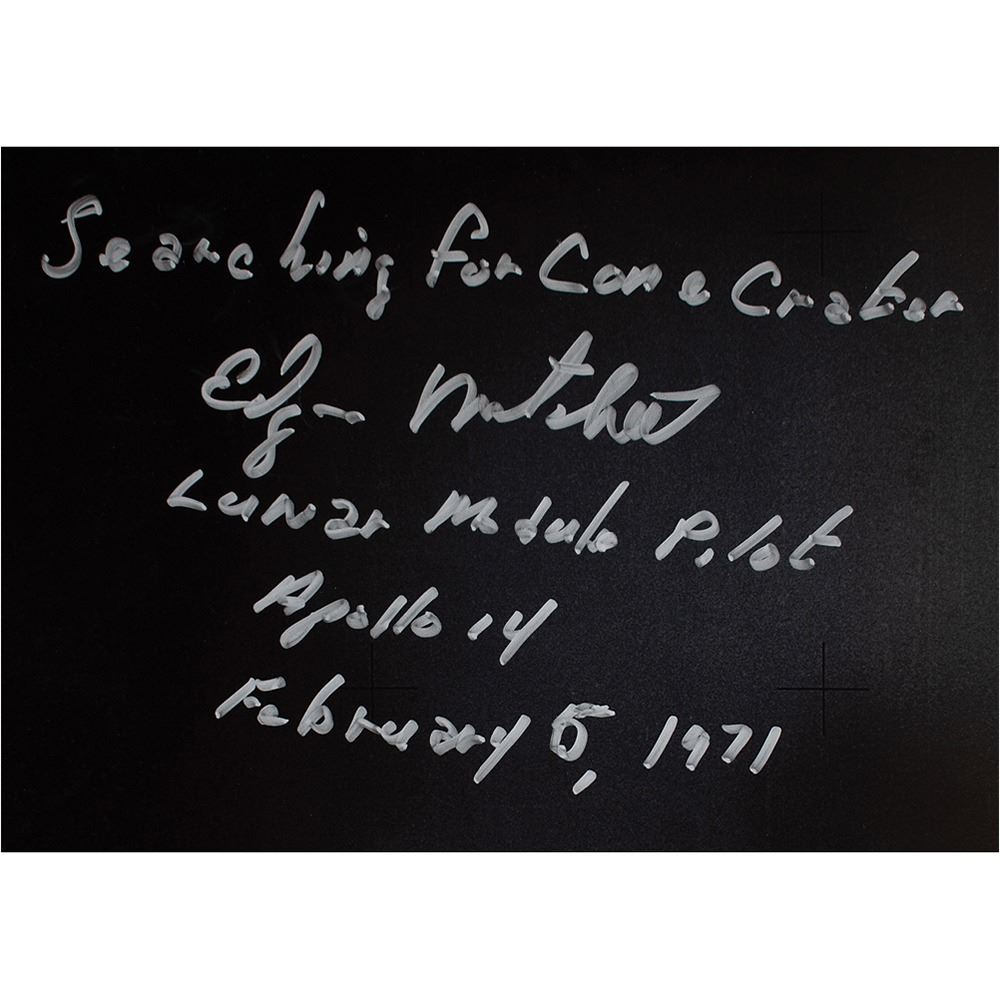 Searching for Cone Crater
Edgar Mitchell
Lunar Module Pilot
Apollo 14
February 5, 1971